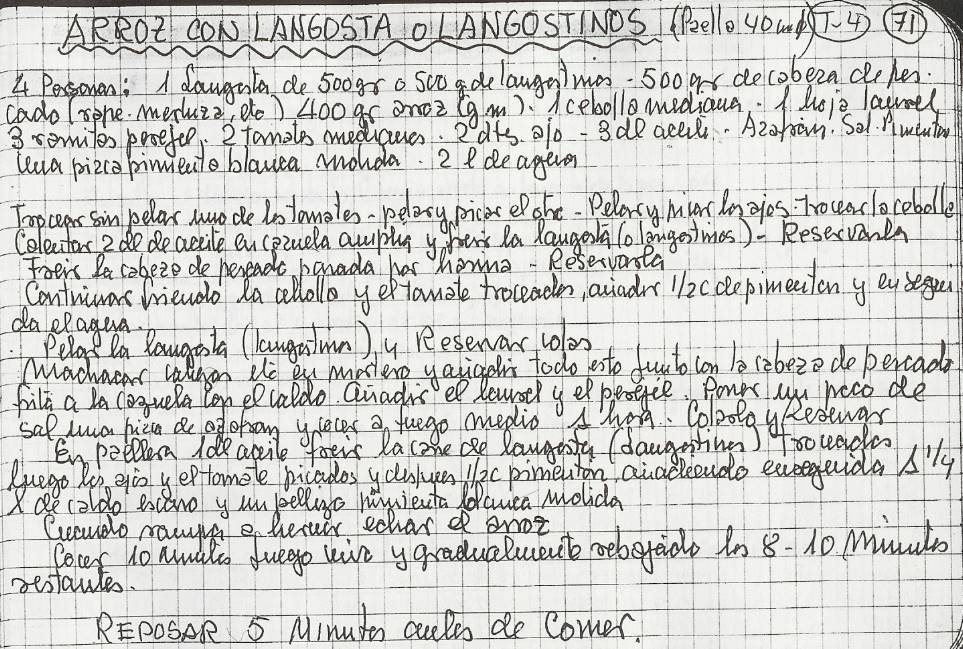 ARROZ CON LANGOSTA O LANGOSTINOS (Paella 40 cm) T-4 71
4 Personas: 1 Langosta de 500 gr o 500 g de langostinos - 500 gr de cabeza de pes-
cado (rape. merluza, etc) 400 gr arroz (g.m). 1 cebolla mediana. 1 hoja laurel
3 ramitos perejil. 2 tomates medianos. 2 dts. ajo - 3 dl aceite. Azafrán. Sal. Pimentón
Una pizca pimienta blanca molida. 2 l de agua
Trocear sin pelar uno de los tomates - pelar y picar el otro - Pelar y picar los ajos. trocear la cebolla
Calentar 2 dl de aceite en cazuela amplia y freir la langosta (o langostinos) - Reservarla
Freir la cabeza de pescado pasada por harina - Reservarla
Continuar friendo la cebolla y el tomate troceados, añadir 1/2 c de pimenton y en segui
da el agua.
Pelar la langosta (langostinos) y Reservar colas
Machacar etc en mortero y añadir todo esto junto con la cabeza de pescado
frita a la cazuela con el caldo. Añadir el laurel y el perejil. Poner un poco de
sal una pizca de azafran y cocer a fuego medio 1 hora. Colarlo y Reservar
En paellera 1 dl aceite freir la carne de langosta (langostinos) troceados
luego los ajos y el tomate picados y despues 1/2 c pimenton, añadiendo enseguida 1 1/4
l de caldo escaso y un pellizco pimienta blanca molida
Cuando rompa a hervir echar el arroz
Cocer 10 minutos fuego vivo y gradualmente rebajado los 8-10 Minutos
restantes.
REPOSAR 5 Minutos antes de Comer.